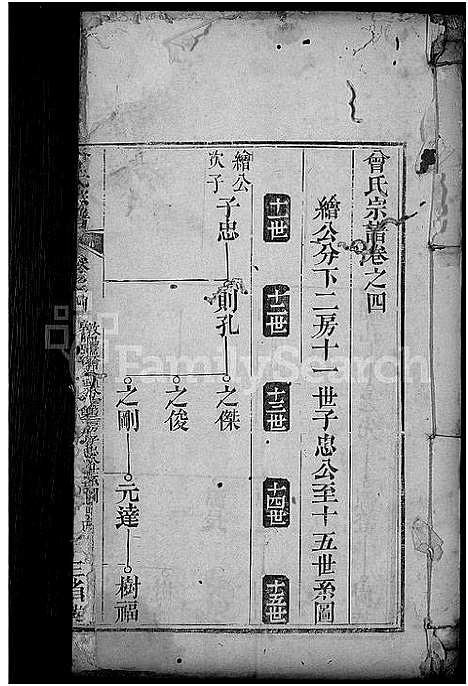 曾氏宗譜卷之四
繪公分下二房十一世子忠公至十五世系圖
十一世
十二世
十三世
十四世
十五世
繪公
次子
子忠
則孔
之傑
之俊
之剛
元達
樹福
FamilySearch